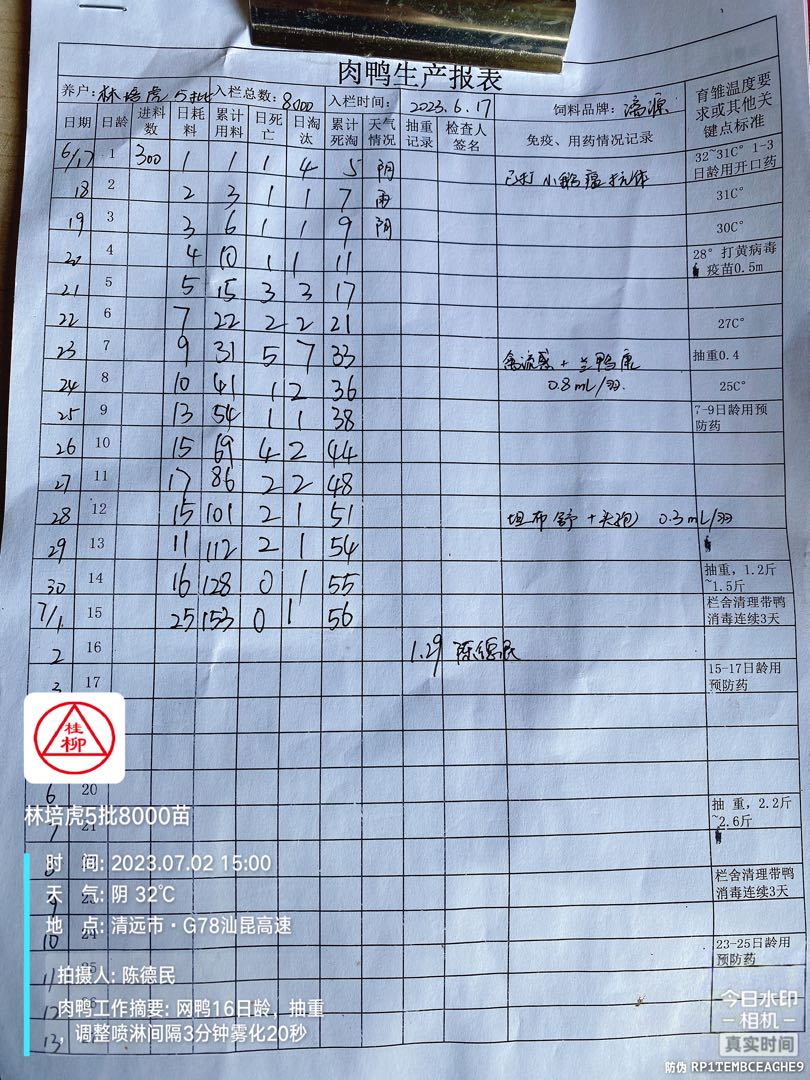 肉鸭生产报表
养户: 林培虎 5批 入栏总数: 8000 入栏时间: 2023.6.17 饲料品牌:
日期 日龄 进料数 日耗料 累计用料 日死亡 日淘汰 累计死淘 天气情况 抽重记录 检查人签名 免疫、用药情况记录 育雏温度要求或其他关键点标准
6/17 1 300 1 1 1 4 5 阴 已打小鹅瘟抗体 32~31C° 1-3日龄用开口药
18 2 2 3 1 1 7 雨 31C°
19 3 3 6 1 1 9 阴 30C°
20 4 4 10 1 1 11 28° 打黄病毒疫苗0.5m
21 5 5 15 3 3 17
22 6 7 22 2 2 21 27C°
23 7 9 31 5 7 33 禽流感 + 鸭康 0.8mL/羽. 抽重0.4
24 8 10 41 1 2 36 25C°
25 9 13 54 1 1 38 7-9日龄用预防药
26 10 15 69 4 2 44
27 11 17 86 2 2 48
28 12 15 101 2 1 51 坦布舒 + 头孢 0.3mL/羽
29 13 11 112 2 1 54
30 14 16 128 0 1 55 抽重，1.2斤~1.5斤
7/1 15 25 153 0 1 56 栏舍清理带鸭消毒连续3天
2 16 1.29 陈德民
3 17 15-17日龄用预防药
桂柳
6 20
林培虎5批8000苗
7 21 抽 重，2.2斤~2.6斤
时 间: 2023.07.02 15:00
天 气: 阴 32℃
栏舍清理带鸭消毒连续3天
地 点: 清远市·G78汕昆高速
10 24 23-25日龄用预防药
拍摄人: 陈德民
11 25
肉鸭工作摘要: 网鸭16日龄，抽重
，调整喷淋间隔3分钟雾化20秒
12
13
今日水印
相机
真实时间
防伪 RP1TEMBCEAGHE9